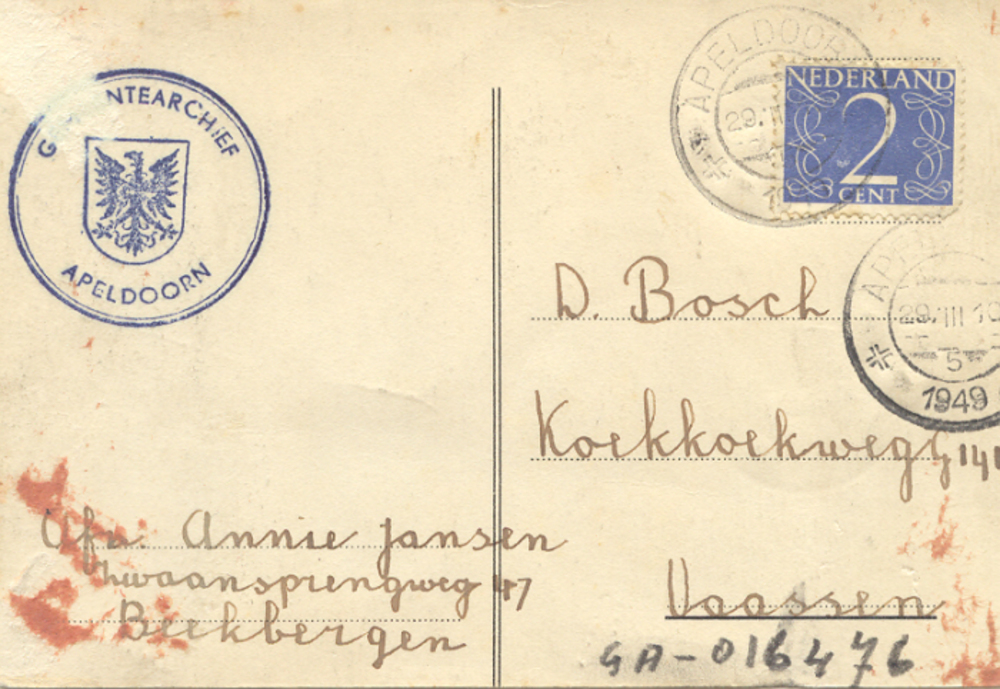 NTEARCHIEF
APELDOORN
APELDOOR
29.III
NEDERLAND
2
CENT
29.III 19
5
1949
D. Bosch
Koekkoekweg G 141
Vaassen
Afz. Annie Jansen
Zwaansprengweg 47
Beekbergen
GA-016476